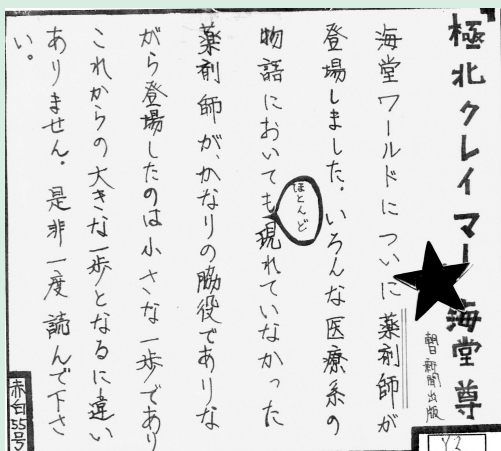 極北クレイマー 海堂尊
朝日新聞出版
海堂ワールドについに薬剤師が
登場しました。いろんな医療系の
物語においてもほとんど現れていなかった
薬剤師が、かなりの脇役でありな
がら登場したのは小さな一歩であり
これからの大きな一歩となるに違い
ありません。是非一度読んで下さ
い。
赤白55号